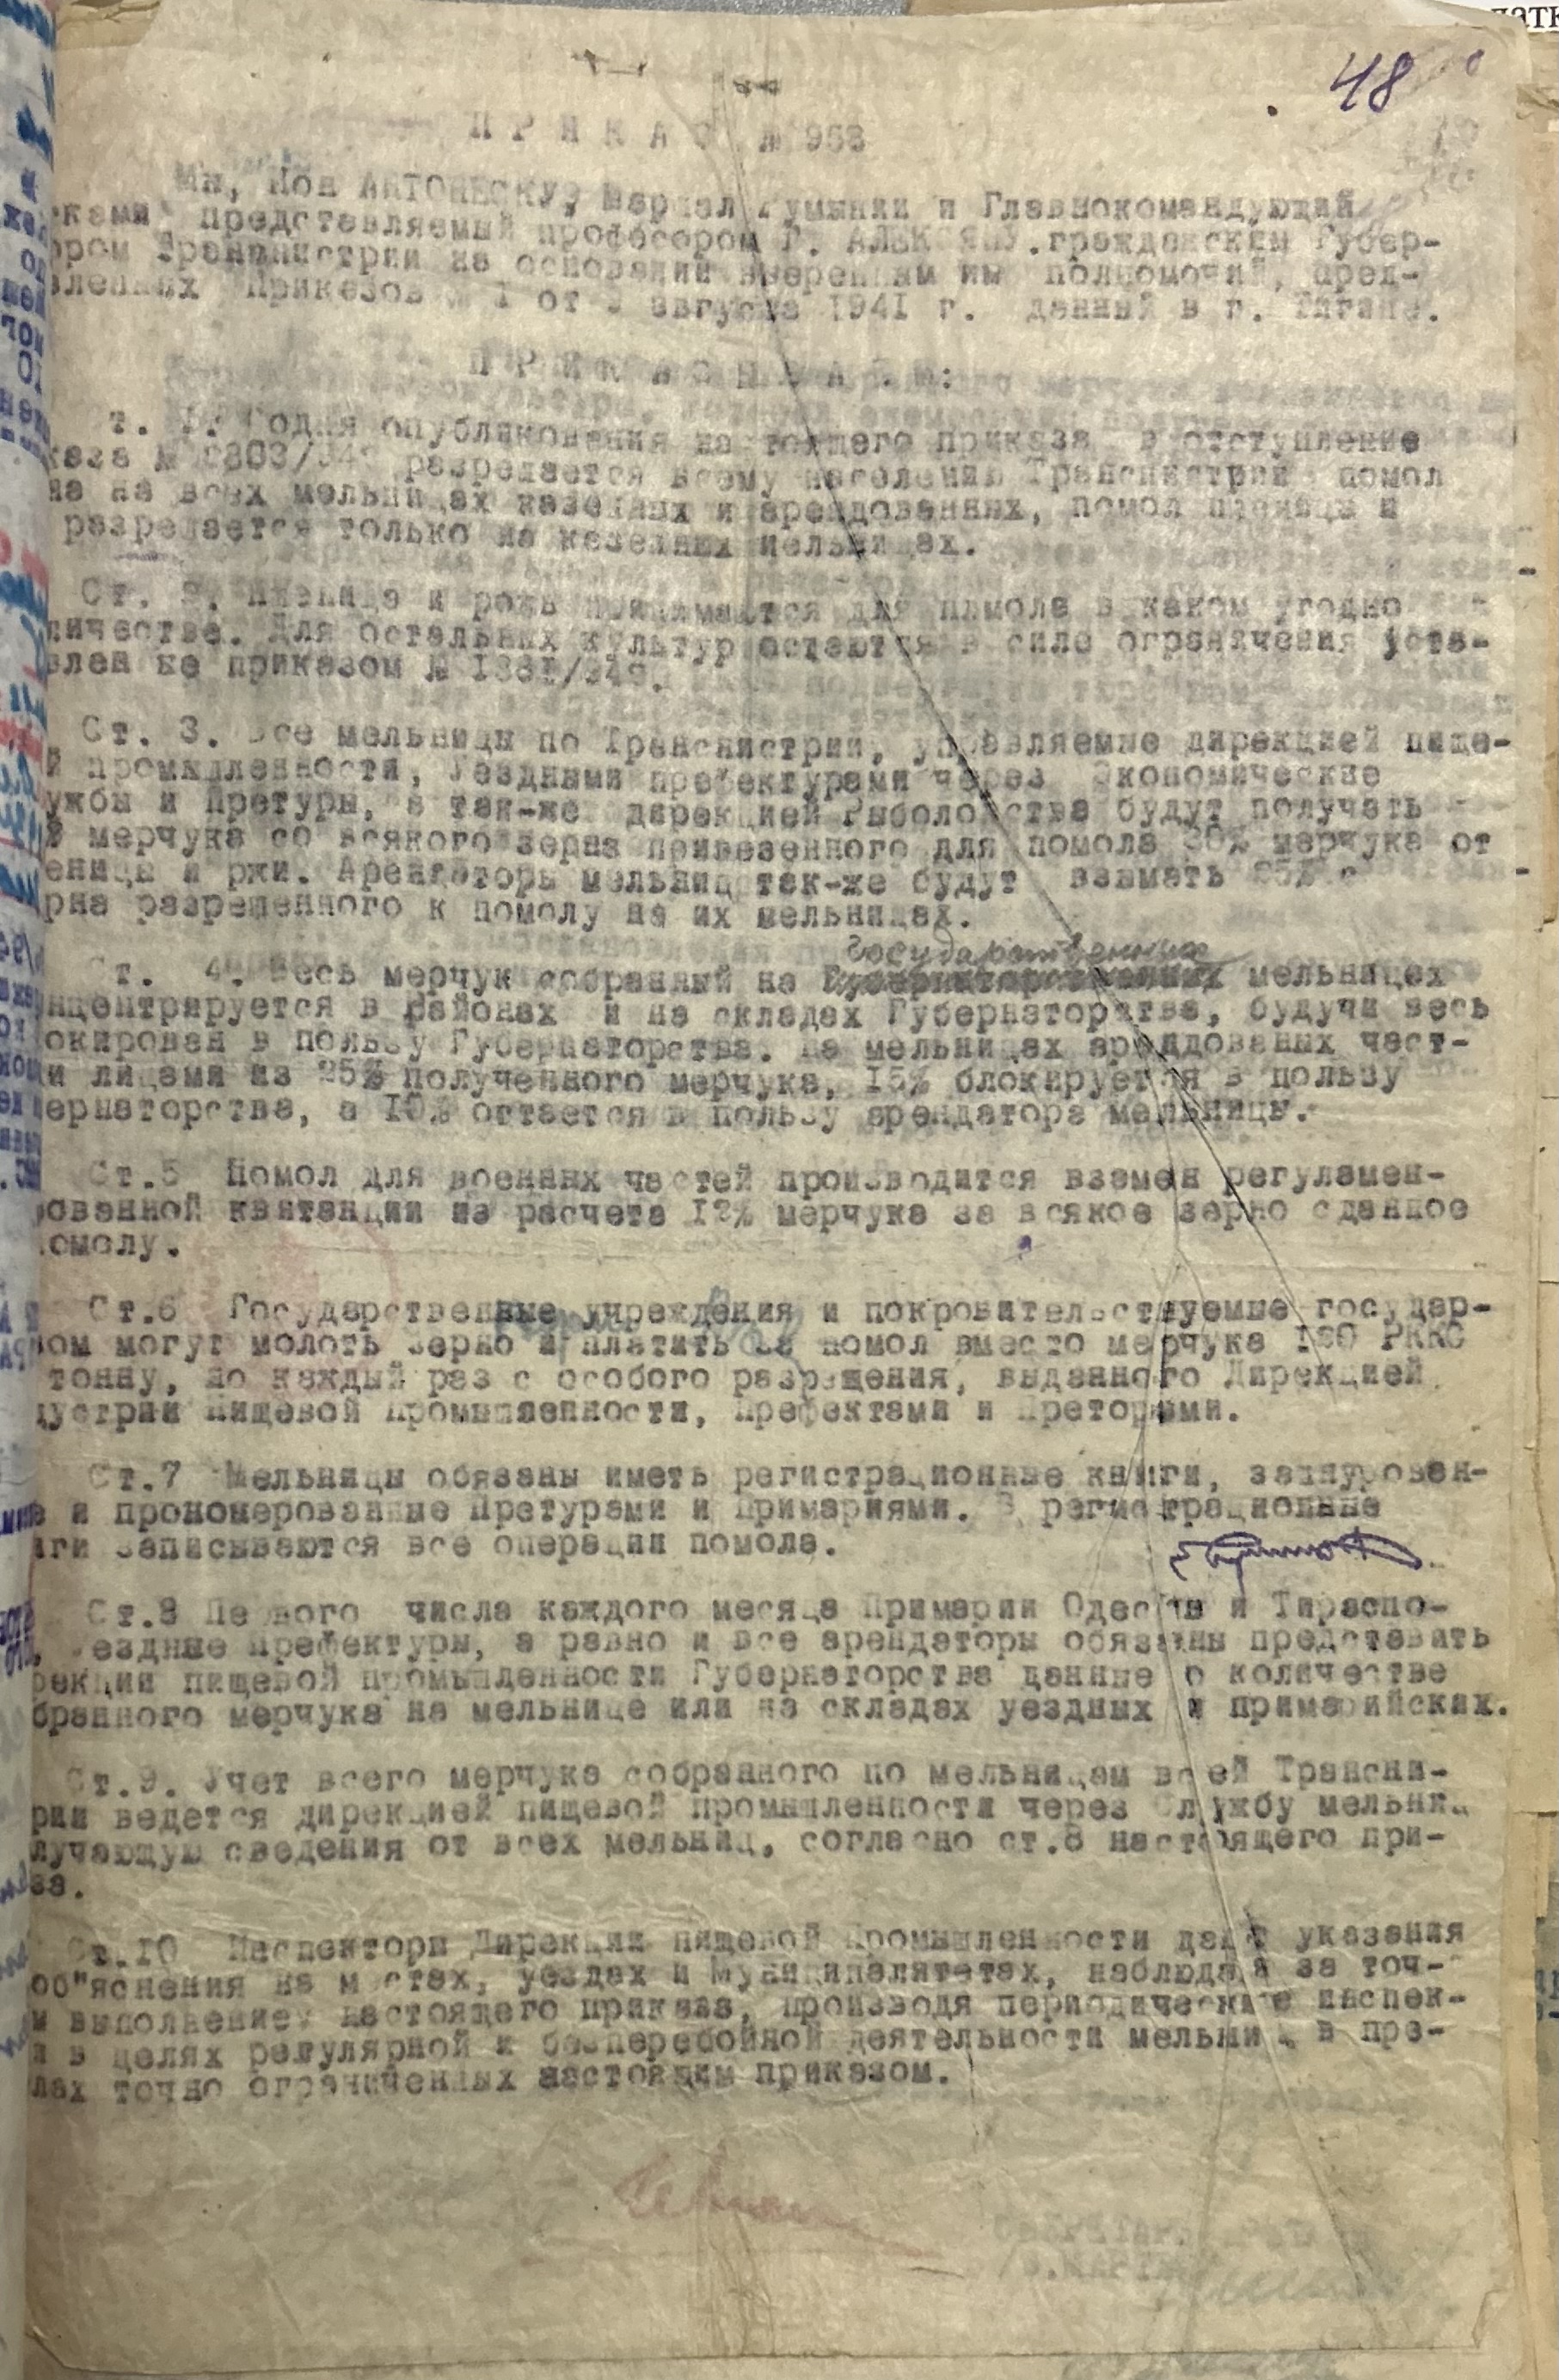 48
ПРИКАЗ № 968
Мы, Ион АНТОНЕСКУ, Маршал Румынии и Главнокомандующий
сками, представляемый профосором Г. АЛЕКСЯНУ, гражданским Губер-
ором Транснистрии на основании вверенных им полномочий, пред-
вленных Приказов № 1 от августа 1941 г. данный в г. Тигине.
ПРИКАЗЫВАЕМ:
т. 1. Содня опубликования настоящего приказа в отступление
каза № разрешается всему населению Транснистрии помол
на на всех мельницах казенных и арендованных, помол пшеницы и
разрешается только на казенных мельницах.
Ст. 2. Пшеница и рожь принимаются для помола в каком угодно
личестве. Для остальных культур остаются в силе ограничения уста-
влен ые приказом №
Ст. 3. Все мельницы по Транснистрии, управляемые дирекцией пище-
й промышленности, Уездными префектурами через Экономические
ужбы и Претуры, а так-же дирекцией Рыболовства будут получать
мерчука со всякого зерна привезенного для помола 30% мерчука от
еницы и ржи. Арендаторы мельниц так-же будут взымать 25% с
рна разрешенного к помолу на их мельницах.
Государственных
Ст. 4. Весь мерчук собранный на мельницах
нцентрируется в районах и на складах Губернаторства, будучи весь
окирован в пользу Губернаторства. На мельницах арендованых част-
и лицами из 25% полученного мерчука, 15% блокируется в пользу
ернаторства, а 10% остается в пользу арендатора мельницы.
Ст.5 Помол для военных частей производится взамен регуламен-
ованной квитанции из расчета 12% мерчука за всякое зерно сданное
омолу.
Ст.6 Государственные учреждения и покровительствуемые государ-
ом могут молоть зерно и платить за помол вместо мерчука РККС
тонну, но каждый раз с особого разрещения, выданного Дирекцией
дустрии Пищевой Промышленности, Префектами и Преторами.
Ст.7 Мельницы обязаны иметь регистрационные книги, зашнурован-
е и прономерованные Претурами и Примариями. В регистрационные
иги записываются все операции помола.
Ст.8 Первого числа каждого месяца Примарии Одессы и Тираспо-
, Уездные Префектуры, а равно и все арендаторы обязаны представить
рекции пищевой промышленности Губернаторства данные о количестве
бранного мерчука на мельнице или на складах уездных и примарийских.
Ст.9. Учет всего мерчука собранного по мельницам всей Трансни-
рии ведется дирекцией пищевой промышленности через Службу мельниц
лучающую сведения от всех мельниц, согласно ст.8 настоящего при-
за.
Ст.10 Инспектори Дирекции пищевой Промышленности дают указания
об"яснения на местах, уездах и Муниципалитетах, наблюдая за точ-
м выполнением настоящего приказа, производя периодические инспек-
и в целях регулярной и безперебойной деятельности мельниц в пре-
лах точно ограниченных настоящим приказом.